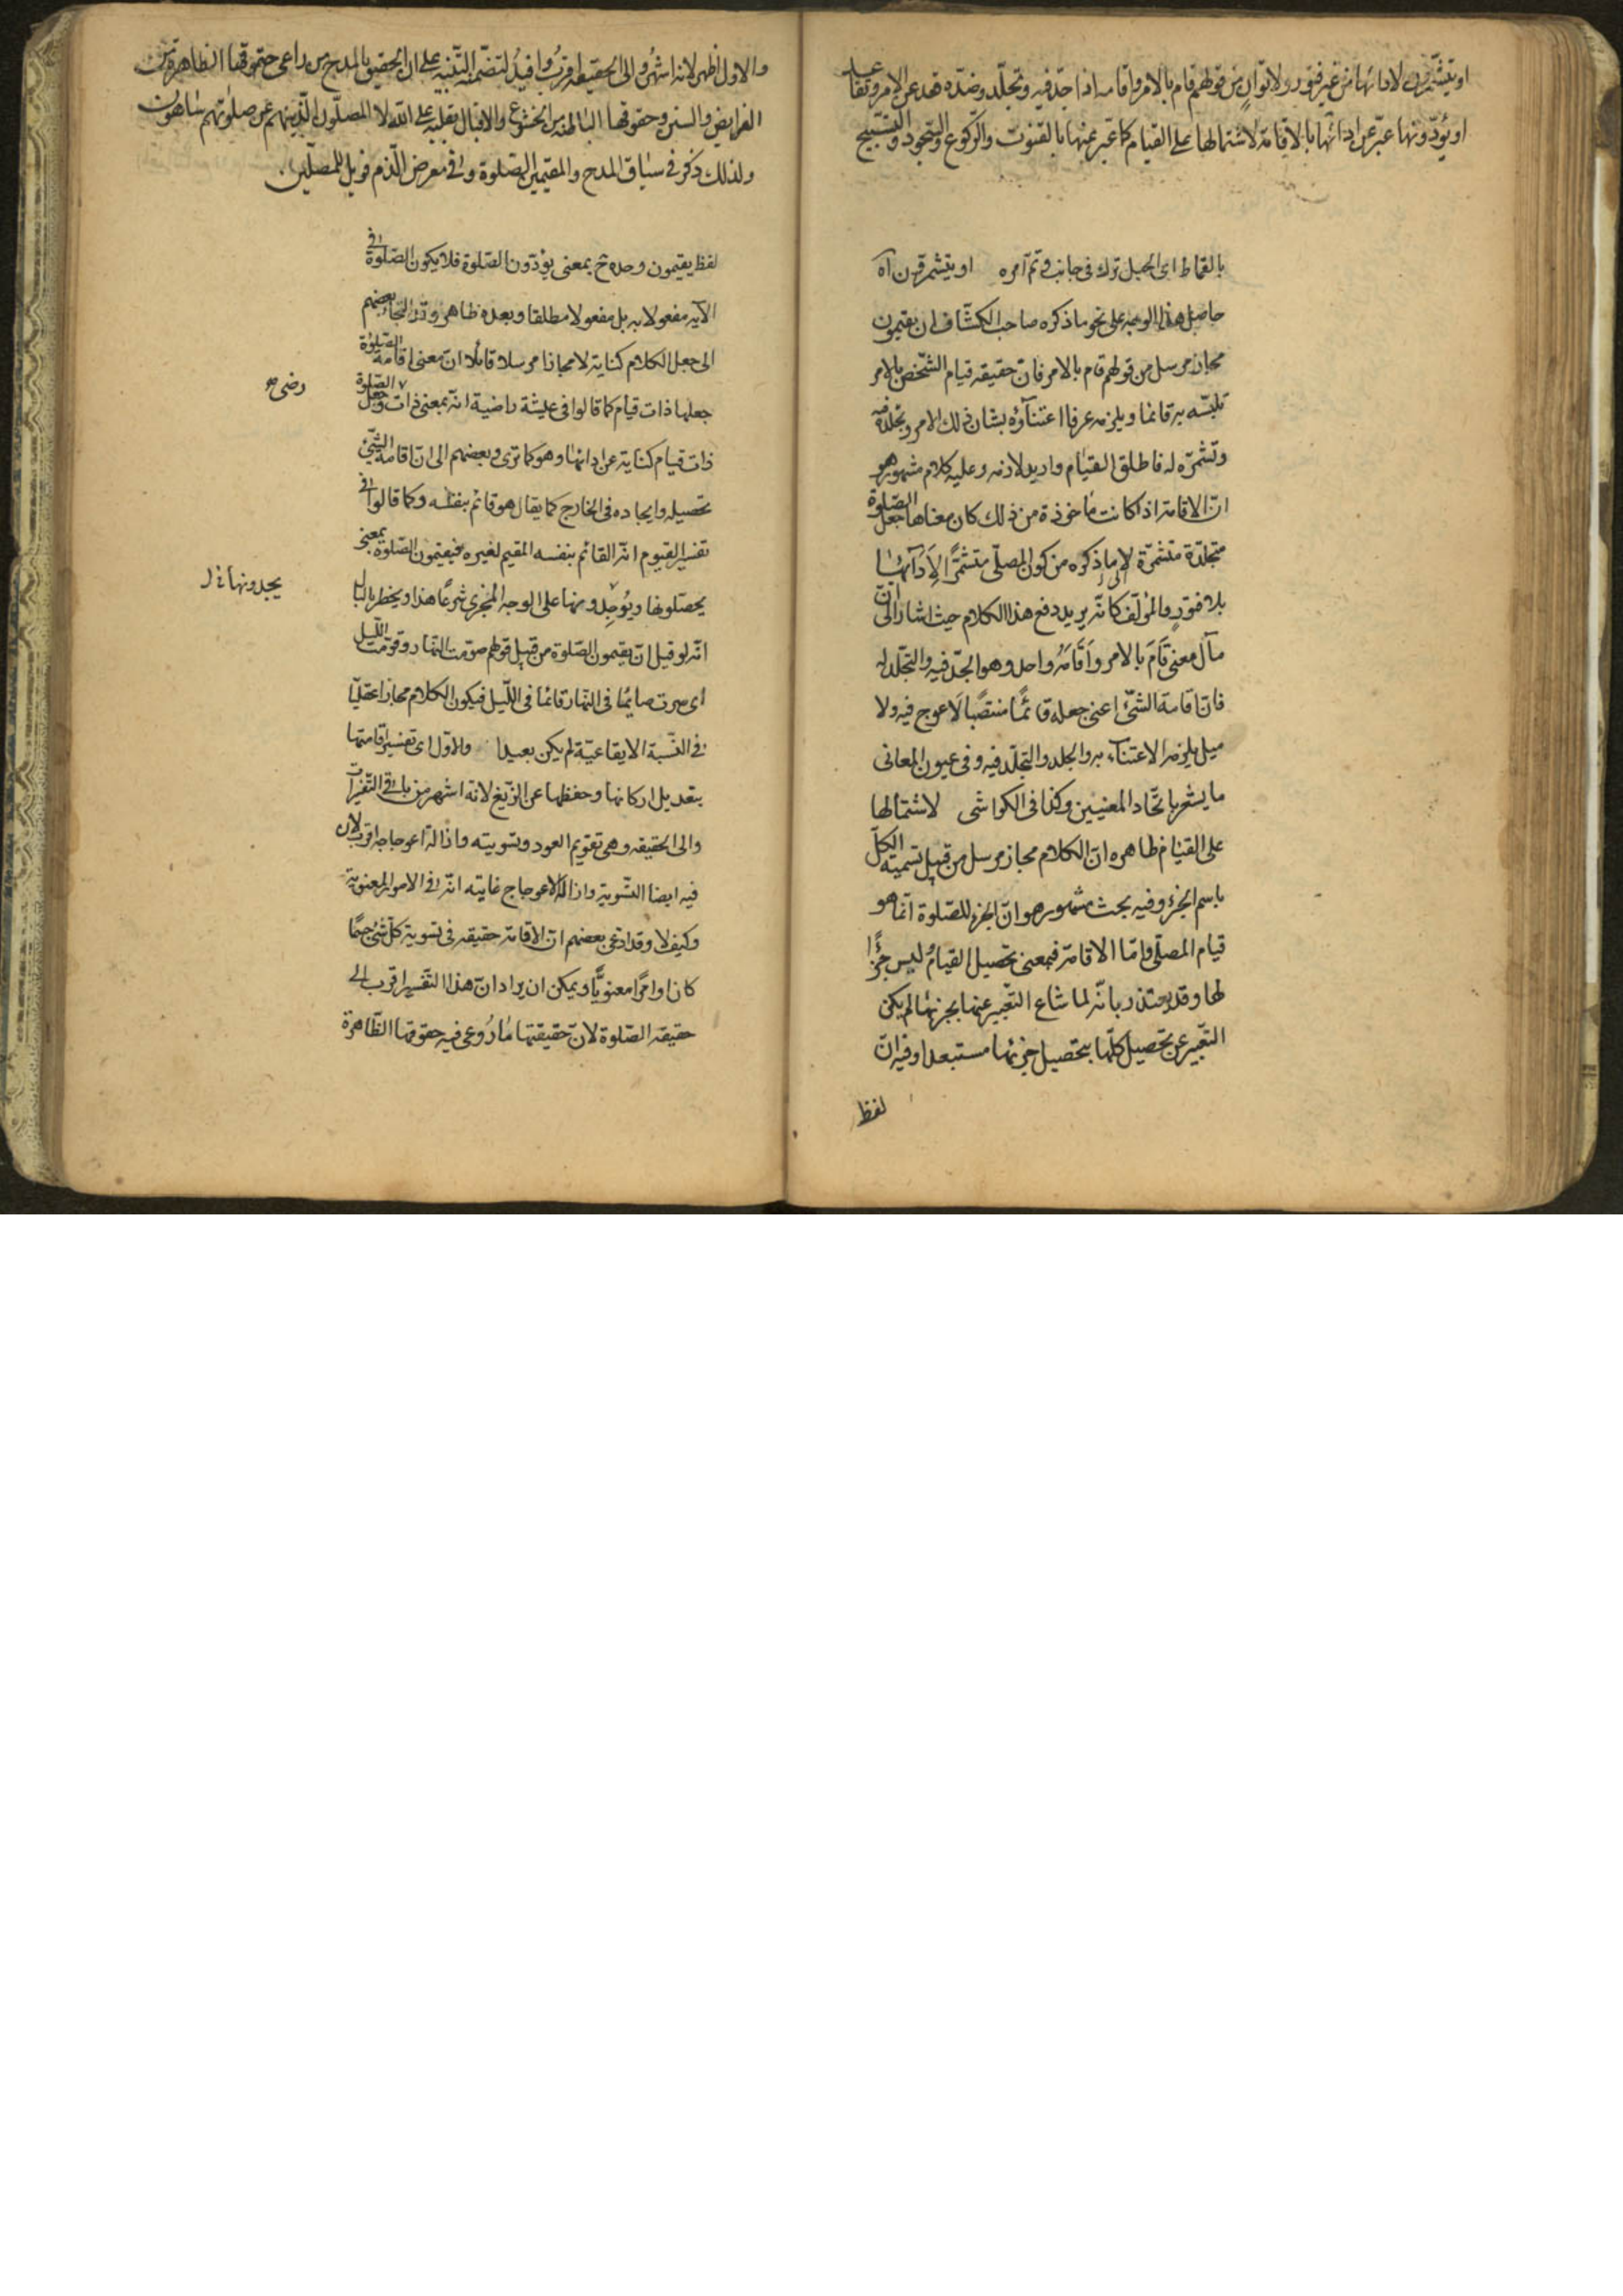 او يتشمرون لادائها من غير فتور ولا توان من قولهم قام بالامر واقامه اذا جدّ فيه وتجلّد وضدّه قعد عن الامر وتقاعد
او يؤدّونها عبّر عن ادائها بالاقامة لاشتمالها على القيام كما عبّر عنها بالقنوت والركوع والسجود والتسبيح
بالقماط اى الحبل ترك فى جانب وتم آمره او يتشمرون آه
حاصل هذا الوجه على نحو ما ذكره صاحب الكشّاف ان يقيمون
مجاز مرسل من قولهم قام بالامر فانّ حقيقة قيام الشّخص بالامر
تلبّسه به قائما ويلزمه عرفا اعتنآؤه بشان ذلك الامر وتجلّده فيه
وتشمّره له فاطلق القيام واريد لازمه وعليه كلام مشهور هو
انّ الاقامة اذا كانت مأخوذة من ذلك كان معناها جعل الصّلوة
متجلّدة متشمّرة لا ما ذكره من كون المصلّى متشمّرًا لِاَدَآئها
بلا فتورٍ والمؤلّف كانّه يريد دفع هذا الكلام حيث اشار الى انّ
مآل معنى قَامَ بالامر واَقَامَهُ واحد وهو الجدّ فيه والتجلّد له
فانّ اقامة الشّئ اعنى جعله قائمًا منتصبًا لَا عوج فيه ولا
ميل يلزمه الاعتناء به والجلد والتجلّد فيه وفى عيون المعانى
ما يشعر باتّحاد المعنيين وكذا فى الكواشى لاشتمالها
على القيام ظاهره انّ الكلام مجاز مرسل من قبيل تسمية الكلّ
باسم الجزء وفيه بحث مشهور هو انّ الجزء للصّلوة انّما هو
قيام المصلّى وامّا الاقامة فبمعنى تحصيل القيام وليس جزًا
لها وقد يعتذر بانّه لما شاع التّعبير عنها بجزئها لم يكن
التّعبير عن تحصيل كلّها بتحصيل جزئها مستبعدا وفيه انّ
لفظ
والاول اظهر لانه اشهر والى الحقيقة اقرب وافيد لتضمّنه التّنبيه على ان الحقيق بالمدح من راعى حقوقها الظاهرة من
الفرايض والسنن وحقوقها الباطنة من الخشوع والاقبال بقلبه على الله لا المصلّون الّذين هم عن صلوتهم ساهون
ولذلك ذكر فى سياق المدح والمقيمين الصّلوة وفى معرض الذّم فويل للمصلّين
لفظ يقيمون وحده ح بمعنى يؤدّون الصّلوة فلا يكون الصّلوة فى
الآية مفعولا به بل مفعولا مطلقا وبعده ظاهر وقد التجاء بعضهم
الى جعل الكلام كناية لا مجازا مرسلا قائلا انّ معنى اقامة الصّلوة
جعلها ذات قيام كما قالوا فى عيشة راضية انّه بمعنى ذات رضى وجعل الصّلوة
ذات قيام كناية عن ادائها وهو كما ترى وبعضهم الى انّ اقامة الشّئ
تحصيله وايجاده فى الخارج كما يقال هو قائم بنفسه وكما قالوا فى
تفسير القيّوم انّه القائم بنفسه المقيم لغيره فيقيمون الصّلوة بمعنى
يحصّلونها ويُوجدونها على الوجه المجزى شرعًا هذا ويخطر بالبال
انّه لو قيل انّ يقيمون الصّلوة من قبيل قولهم صوّمت النّهار وقوّمت اللّيل
اى صرت صايمًا فى النّهار قائمًا فى اللّيل فيكون الكلام مجازا عقليّا
فى النّسبة الايقاعيّة لم يكن بعيدا والاوّل اى تفسير اقامتها
بتعديل اركانها وحفظها عن الزّيغ لانه اشهر من باقى التّفسيرات
والى الحقيقه وهى تقويم العود وتسويته وازالة اعوجاجه اقرب لان
فيه ايضا التّسوية وازالة الاعوجاج غايته انّه فى الامور المعنوية
وكيف لا وقد ادعى بعضهم انّ الاقامة حقيقة فى تسوية كلّ شئ جسمًا
كان او امرًا معنويًّا ويمكن ان يراد انّ هذا التّفسير اقرب الى
حقيقة الصّلوة لانّ حقيقتها ما رُوعى فيه حقوقها الظّاهرة
رضى
يجدونها